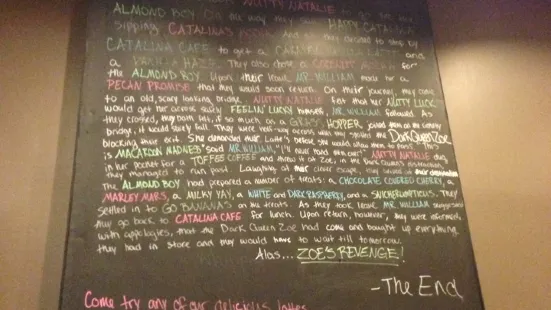 NUTTY NATALIE to go see the
ALMOND BOY On the way they saw HAPPY CATALINA
sipping CATALINAS MOCHA. And so they decided to stop by
CATALINA CAFE to get a CARAMEL and
a . They also chose a COCONUT for
the ALMOND BOY. Upon their leave MR. WILLIAM made her a
PECAN PROMISE that they would soon return. On their journey, they came
to an old, scary looking bridge. NUTTY NATALIE felt that her NUTTY LUCK
would get her across safely. FEELIN' LUCKY himself, MR. WILLIAM followed. As
they crossed, they both felt, if so much as a GRASS HOPPER joined them on the unsteady
bridge, it would surely fall. They were half-way across when they spotted the Dark Queen Zoe
blocking their exit. She demanded their Latte's before she would allow them to pass. "This
is MACAROON MADNESS" said MR. WILLIAM, "I'll never hand over " NUTTY NATALIE dug
in her pocket for a TOFFEE COFFEE and threw it at Zoe; in the Dark Queen's distraction,
they managed to run past. Laughing at their clever escape, they arrived at their destination.
The ALMOND BOY had prepared a number of treats: a CHOCOLATE COVERED CHERRY, a
MARLEY MARS, a MILKY YAY, a WHITE and DARK RASPBERRY, and a SNICKERUMPTIOUS. They
settled in to GO BANANAS on his treats. As they took leave MR. WILLIAM suggested
they go back to CATALINA CAFE for lunch. Upon return, however, they were informed,
with apologies, that the Dark Queen Zoe had come and bought up everything
they had in store and they would have to wait till tomorrow.
Alas... ZOE'S REVENGE!
-The End
Come try any of our delicious lattes